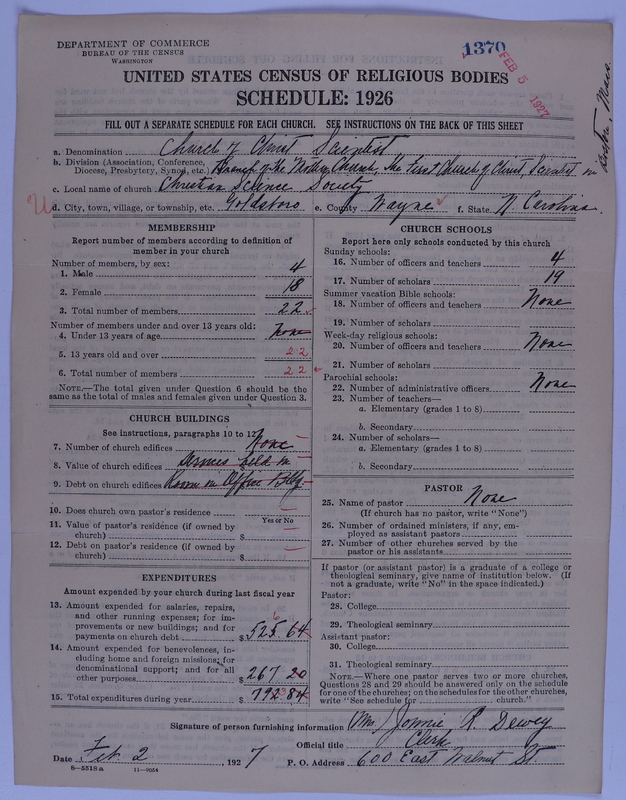 DEPARTMENT OF COMMERCE
BUREAU OF THE CENSUS
WASHINGTON
1370
FEB 5 1927
UNITED STATES CENSUS OF RELIGIOUS BODIES
SCHEDULE: 1926
FILL OUT A SEPARATE SCHEDULE FOR EACH CHURCH. SEE INSTRUCTIONS ON THE BACK OF THIS SHEET
a. Denomination Church of Christ Scientist
b. Division (Association, Conference, Diocese, Presbytery, Synod, etc.) Branch of the Mother Church, The First Church of Christ, Scientist in Boston, Mass.
c. Local name of church Christian Science Society
d. City, town, village, or township, etc. Goldsboro e. County Wayne f. State N. Carolina.
MEMBERSHIP
Report number of members according to definition of
member in your church
Number of members, by sex:
1. Male 4
2. Female 18
3. Total number of members 22
Number of members under and over 13 years old:
4. Under 13 years of age None
5. 13 years old and over 22
6. Total number of members 22
NOTE.—The total given under Question 6 should be
same as the total of males and females given under Question 3.
CHURCH BUILDINGS
See instructions, paragraphs 10 to 12
7. Number of church edifices None
8. Value of church edifices Services held in
9. Debt on church edifices Room in Office Bldg
10. Does church own pastor's residence
Yes or No
11. Value of pastor's residence (if owned by
church) $
12. Debt on pastor's residence (if owned by
church) $
EXPENDITURES
Amount expended by your church during last fiscal year
13. Amount expended for salaries, repairs,
and other running expenses; for im-
provements or new buildings; and for
payments on church debt $ 525 64
6
14. Amount expended for benevolences, in-
cluding home and foreign missions; for
denominational support; and for all
other purposes $ 267 20
15. Total expenditures during year $ 792 84
CHURCH SCHOOLS
Report here only schools conducted by this church
Sunday schools:
16. Number of officers and teachers 4
17. Number of scholars 19
Summer vacation Bible schools:
18. Number of officers and teachers None
19. Number of scholars
Week-day religious schools:
20. Number of officers and teachers None
21. Number of scholars
Parochial schools:
22. Number of administrative officers None
23. Number of teachers—
a. Elementary (grades 1 to 8)
b. Secondary
24. Number of scholars—
a. Elementary (grades 1 to 8)
b. Secondary
PASTOR
25. Name of pastor None
(If church has no pastor, write "None")
26. Number of ordained ministers, if any, em-
ployed as assistant pastors
27. Number of other churches served by the
pastor or his assistants
If pastor (or assistant pastor) is a graduate of a college or
theological seminary, give name of institution below. (If
not a graduate, write "No" in the space indicated.)
Pastor:
28. College
29. Theological seminary
Assistant pastor:
30. College
31. Theological seminary
NOTE.—Where one pastor serves two or more churches,
Questions 28 and 29 should be answered only on the schedule
for one of the churches; on the schedules for the other churches,
write "See schedule for church."
Signature of person furnishing information R. Dewey
Official title Clerk
Date Feb 2, 1927 P. O. Address 600 East Walnut St.
8-5518 a 11-9054